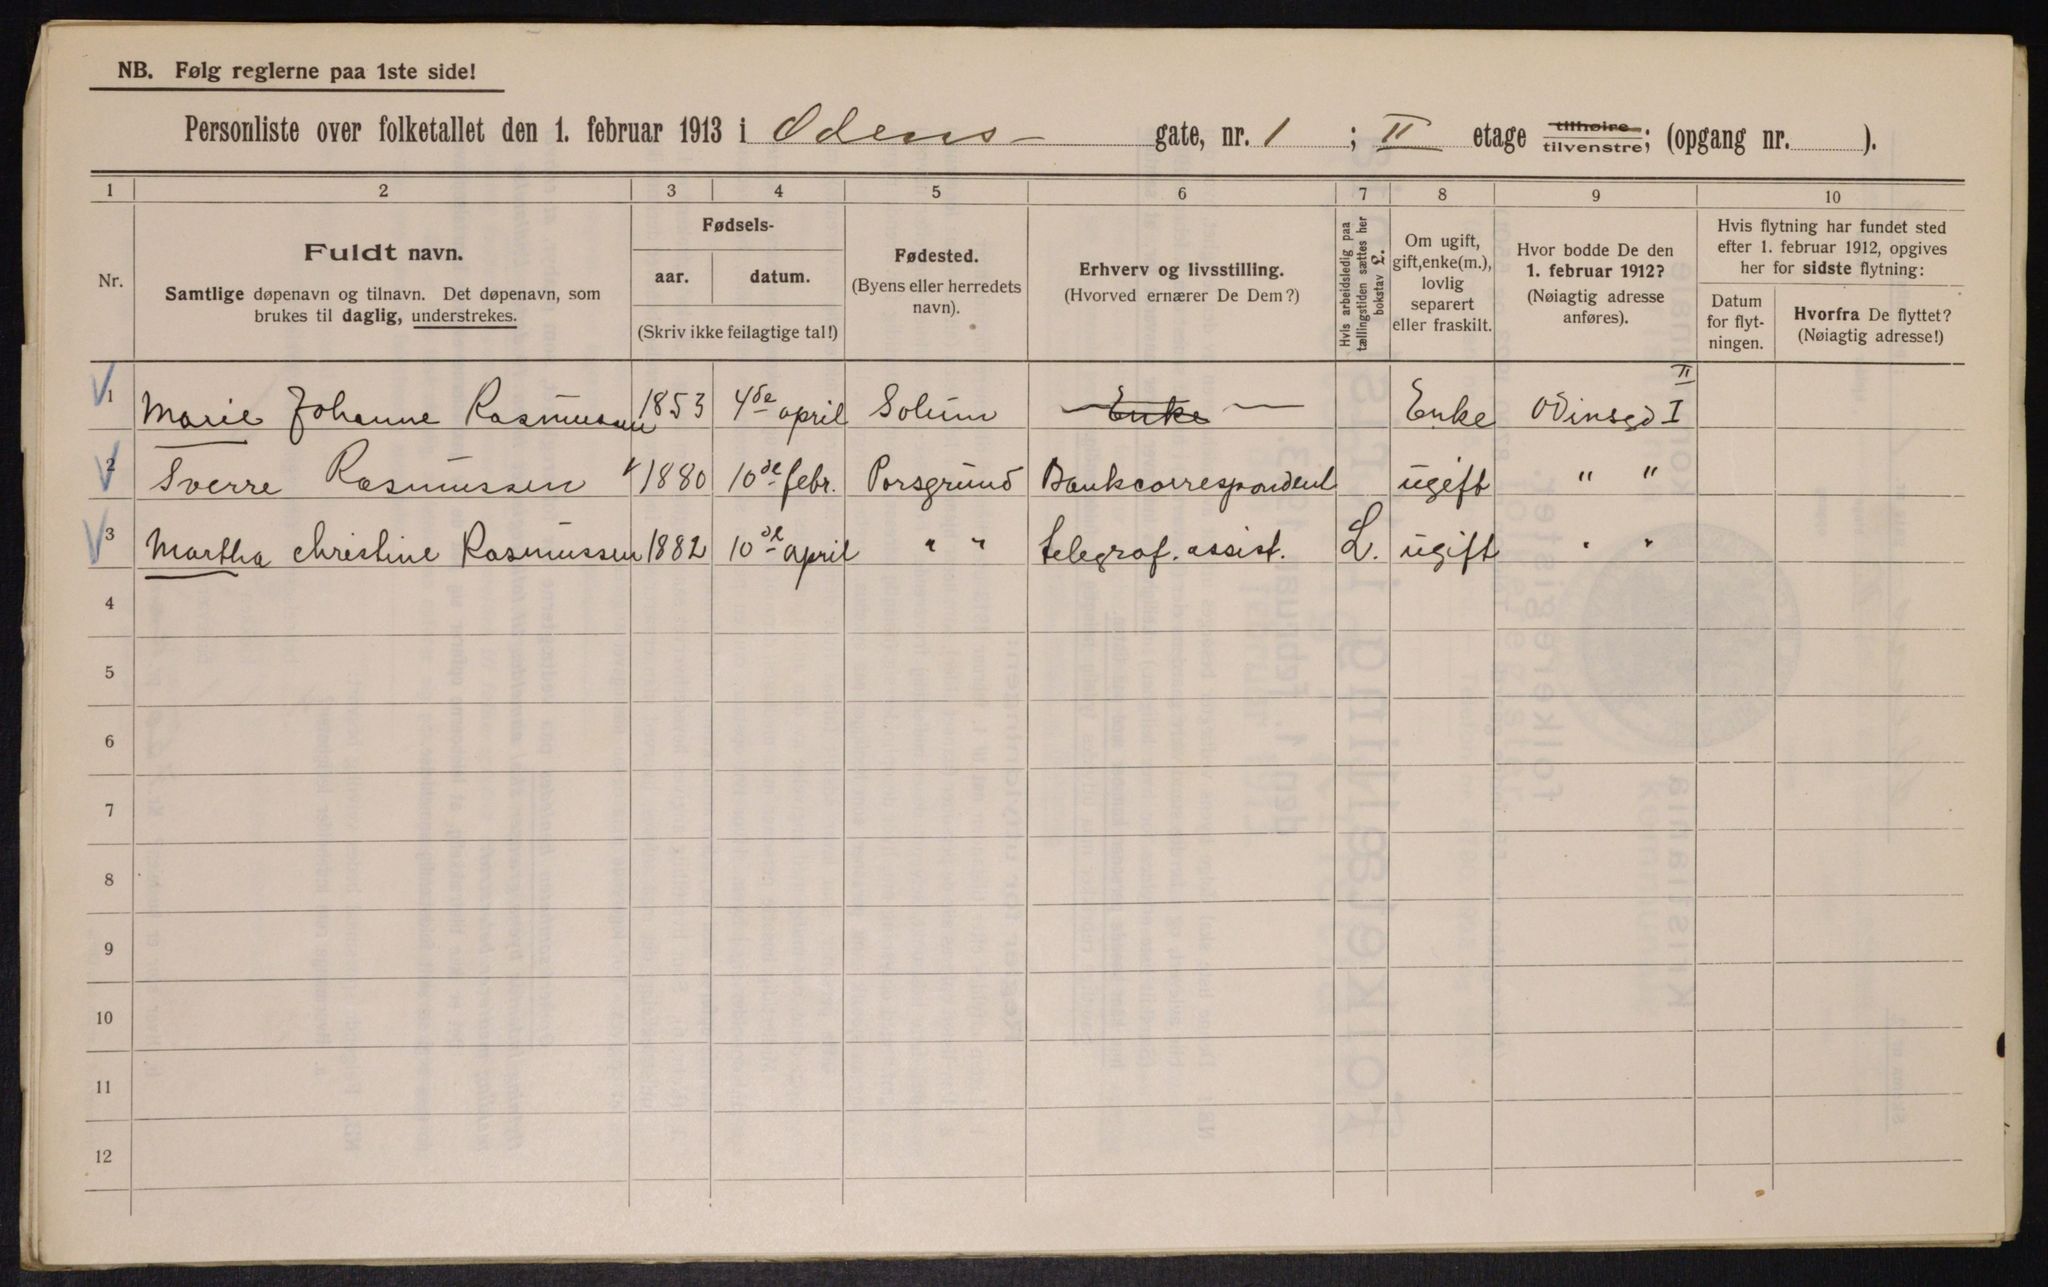 NB. Følg reglerne paa 1ste side!
Personliste over folketallet den 1. februar 1913 i Odens- gate, nr. 1 ; II etage tilhøire/tilvenstre; (opgang nr. ).
1 2 3 4 5 6 7 8 9 10
Nr.
Fuldt navn.
Samtlige døpenavn og tilnavn. Det døpenavn, som
brukes til daglig, understrekes.
Fødsels-
aar. datum.
(Skriv ikke feilagtige tal!)
Fødested.
(Byens eller herredets
navn).
Erhverv og livsstilling.
(Hvorved ernærer De Dem?)
Hvis arbeidsledig paa
tællingstiden sættes her
bokstav L.
Om ugift,
gift, enke(m.),
lovlig
separert
eller fraskilt.
Hvor bodde De den
1. februar 1912?
(Nøiagtig adresse
anføres).
Hvis flytning har fundet sted
efter 1. februar 1912, opgives
her for sidste flytning:
Datum
for flyt-
ningen.
Hvorfra De flyttet?
(Nøiagtig adresse!)
1 Marie Johanne Rasmussen 1853 4de april Solum Enke Enke Odinsgd I II
2 Sverre Rasmussen 1880 10de febr. Porsgrund Bankcorrespondent ugift " "
3 Martha Christine Rasmussen 1882 10de april " " telegraf. assist. L. ugift " "
4
5
6
7
8
9
10
11
12